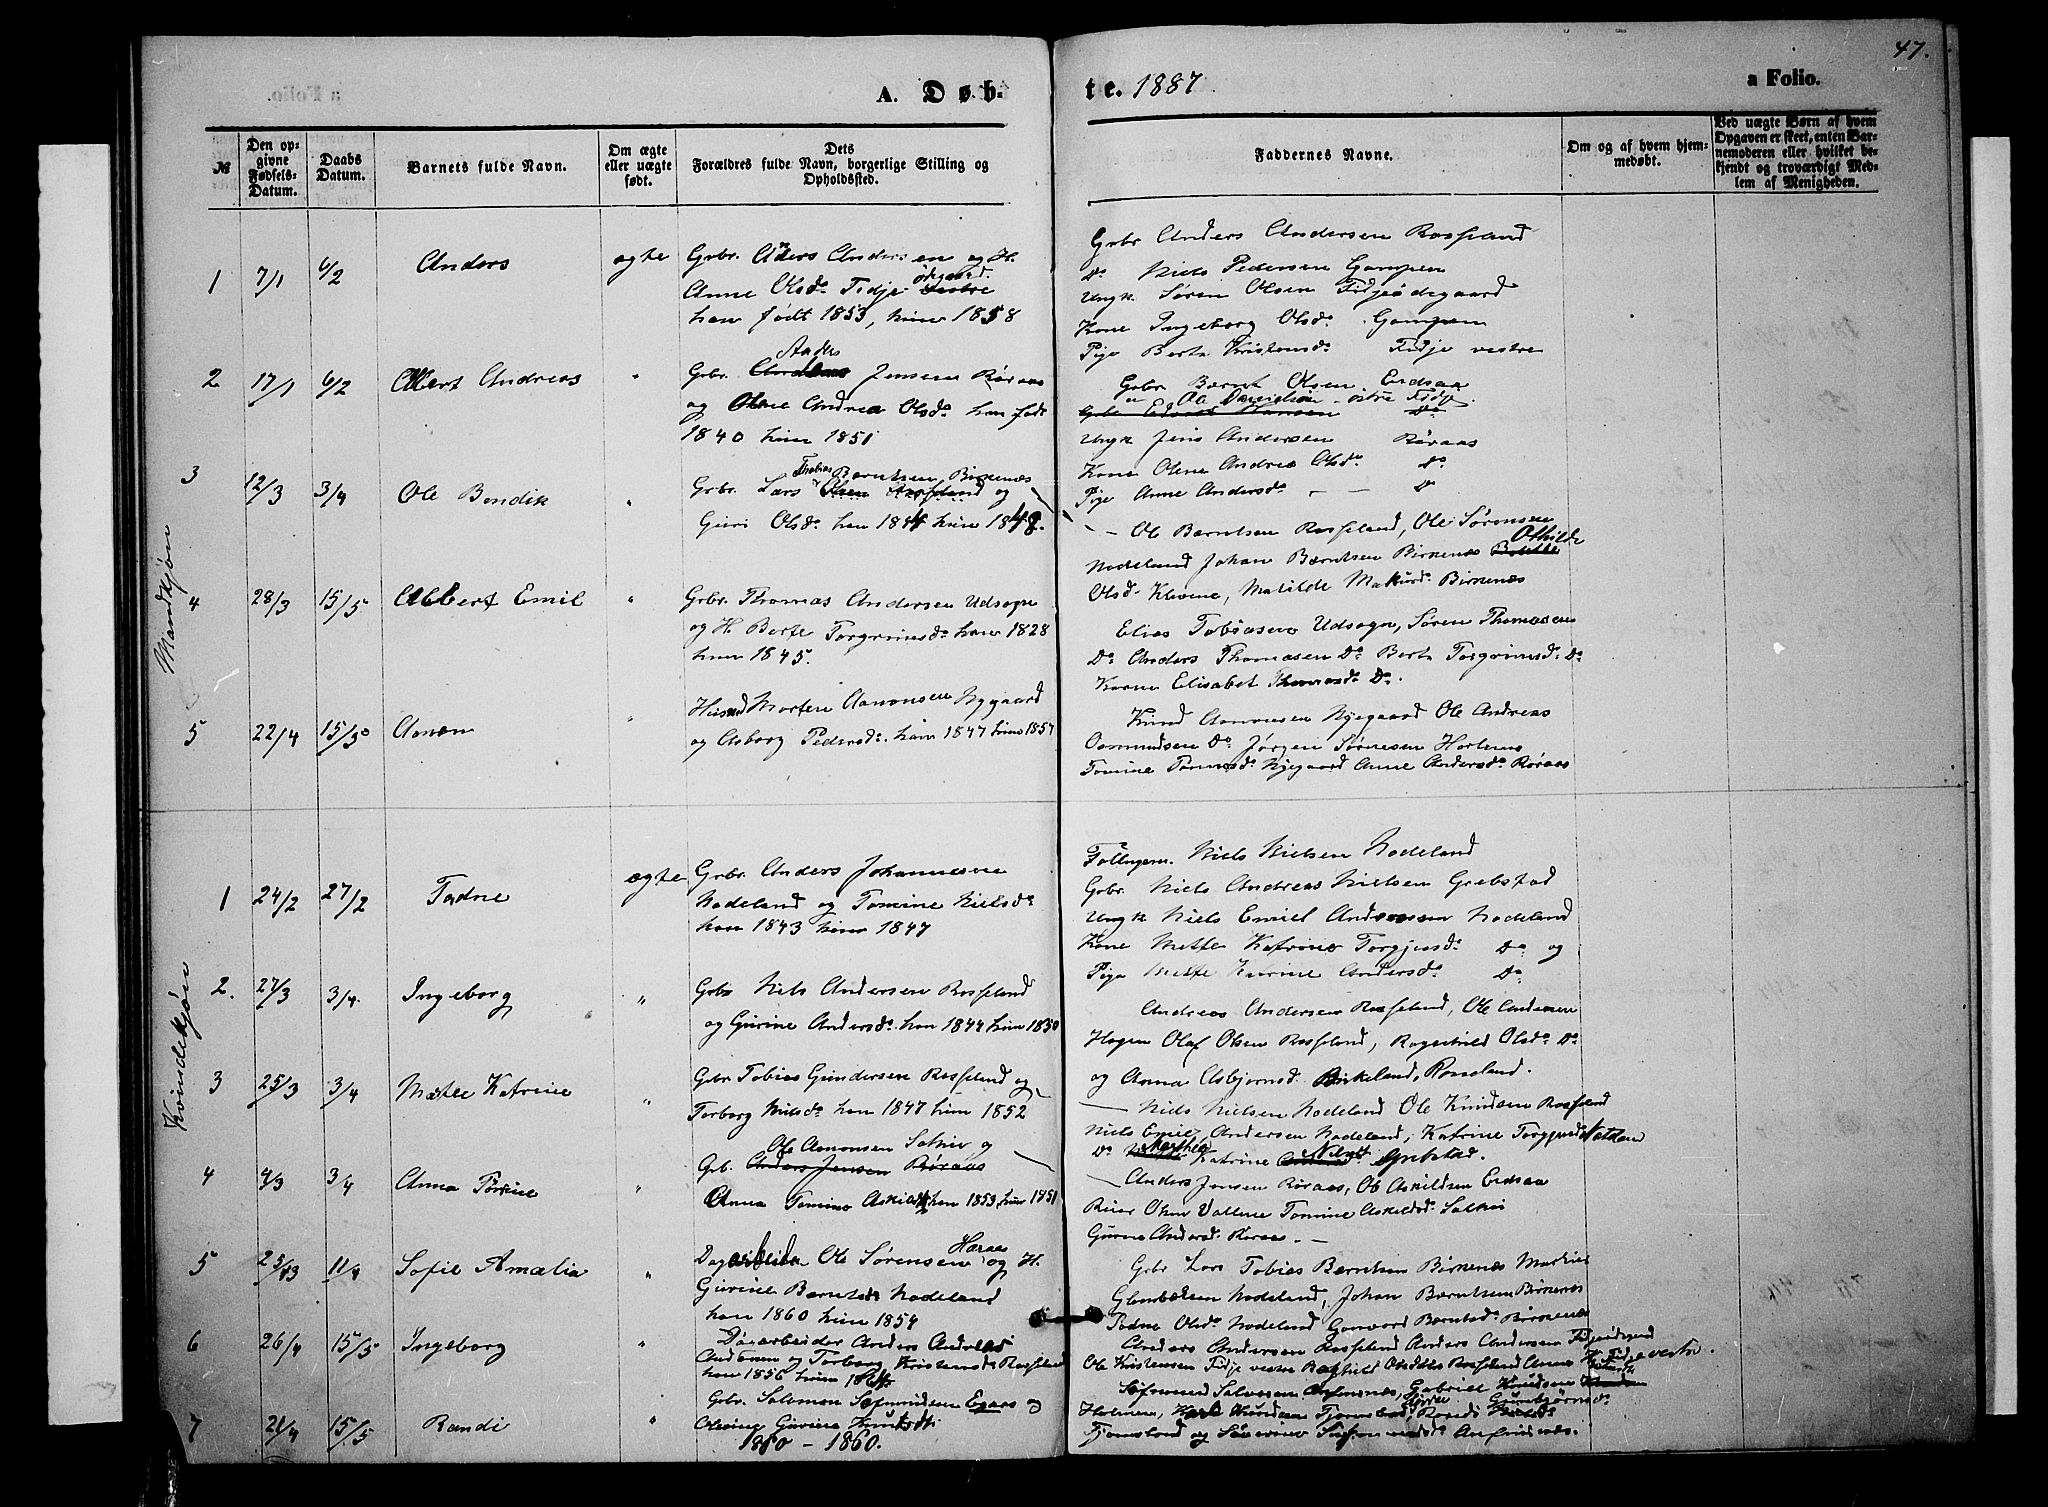 47.
A. Døb-
te. 1887.
a Folio.
№
Den op-
givne
Fødsels-
Datum.
Daabs
Datum.
Barnets fulde Navn.
Om ægte
eller uægte
født.
Dets
Forældres fulde Navn, borgerlige Stilling og
Opholdssted.
Faddernes Navne.
Om og af hvem hjem-
medøbt.
Ved uægte Børn af hvem
Opgaven er skeet, enten Bar-
nemoderen eller hvilket be-
kjendt og troværdigt Med-
lem af Menigheden.
Mandkjøn
1 7/1 6/2 Anders ægte
Grbr. Anders Andersen og H.
Anne Olsd. Fidje ødegaard
han født 1853, hun 1858
Grbr Anders Andersen Rosseland
Do Niels Pedersen Gampen
Ungk. Søren Olsen Fidjeødegaard
Kone Ingeborg Olsd. Gampen
Pige Berte Kristensd. Fidje vestre
2 17/1 6/2 Albert Andreas "
Grbr. Anders Jensen Røraas
og Olene Andrea Olsd. han født
1840 hun 1851
Grbr Bernt Olsen Erdsaa
" Ole Davidsen østre Fidje.
Grbr Edvard Hansen Do
Ungk Jens Andersen Røraas
Kone Olene Andrea Olsd. Do
Pige Anne Andersd. Do
3 12/3 3/4 Ole Bendik "
Grbr. Lars Tobias Berntsen Birkenæs
Olsen Rosseland og
Guri Olsd. han 1844 hun 1848.
Ole Berntsen Rosseland, Ole Sørensen
Nodeland Johan Berntsen Birkenes Othilde
Olsd. Klevene, Matilde Makursd. Birkenæs
4 28/3 15/5 Albert Emil "
Grbr. Thomas Andersen Udsogn
og H. Berte Torgrimsd. han 1828
hun 1845.
Elias Tobiasen Udsogn, Søren Thomasen
Do Anders Thomasen Do Berte Torgrimsd. Do
Karen Elisabet Thomasd. Do.
5 22/4 15/5 Aanen "
Husmd Morten Aanonsen Nygaard
og Asborg Pedersd. han 1847 hun 1857
Knud Aanonsen Nygaard Ole Andreas
Osmundsen Do Jørgen Sørensen Hortemo
Tomine Tomasd. Nygaard Anne Andersd. Røraas
Kvindekjøn
1 24/2 27/2 Tadne ægte
Grbr. Anders Johannesen
Nodeland og Tomine Nielsd.
han 1843 hun 1847
Follugem. Niels Nielsen Nodeland
Grbr. Niels Andreas Nielsen Grebstad
Ungk Niels Emiel Andersen Nodeland
Kone Mette Katrine Torgjusd. Do og
Pige Mette Katrine Andersd. Do
2. 27/3 3/4. Ingeborg "
Grbr Niels Andersen Rosseland
og Gurine Andersd. han 1844 hun 1850
Andreas Andersen Rosseland, Ole Andersen
Hagen Olaf Olsen Rosseland, Ragnhild Olsd. Do
og Anna Asbjørnsd. Birkeland, Rosseland.
3 25/3 3/4 Mætte Katrine "
Grbr Tobias Gundersen Rosseland og
Torborg Nielsd. han 1847 hun 1852
Niels Nielsen Nodeland Ole Knudsen Rosseland
Niels Emiel Andersen Nodeland, Katrine Torgjusd. Nodeland
Do Marthea Katrine Nilsdt Grebstad.
4 4/3 3/4 Anna Tomine "
Ole Aanonsen Solnes og
Grb. Anders Jensen Røraas
Anna Tomine Askildsd. han 1853, hun 1851
Anders Jensen Røraas, Ole Askildsen Erdsaa
Reier Olsen Vallene Tomine Askildsd. Solnes
Gurine Andersd. Røraas. —
5 25/3 11/4 Sofie Amalia "
Dagarbeider Ole Sørensen Haraas og H.
Gurine Berntsd. Nodeland
han 1860 hun 1854
Grbr Lars Tobias Berntsen Birkenæs Markus
Nodeland, Johan Berntsen Birkenæs
Tadne Olsd. Nodeland Gunvor Berntsd. Birkenæs
6 26/4 15/5 Ingeborg "
Dagarbeider Anders Andreas
Andersen og Torborg Kristensd. Rosseland
han 1856 hun
Anders Andersen Rosseland Anders Andersen Fidjeødegaard
Ole Kristensen Fidje vestre Ragnhild Olsd. Rosseland Anne Fidje vestre.
7 21/4 15/5 Randi "
Grbr. Salomon Sigmundsen Egaas og
Olevine Gurine Knutsdt.
1860 – 1860.
Sigmund Salvesen Gabriel Knudsen
Holmen, Karl Knudsen Fjermedal, Randi